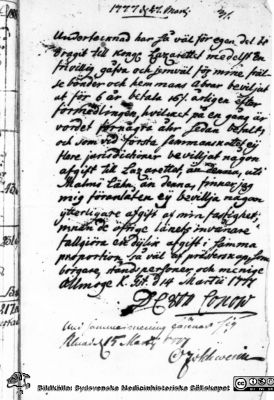 1777 d 27. Martij.
Undertecknad har så väl för egen del
dragit til Kongl Lazarettet medelst En
frivillig gåfva och jemväl för mine fräl-
se bönder och hemmans åbor beviljat
et för 6 år betala 16/. årligen efter
förmedlingen, hvilket på en gång är
vordet förnågra åhr sedan betalt,
och som vid första sammanskottet ej
flere jurisdictioner beviljat någon
afgift til Lazarettet, än denna, uti
Malmö Lähn, än denna, finner jag
mig föranlåten ej bevilja någon
ytterligare afgift af min fastighet,
innan de öfrige länets invånare
fullgiöra en dylik afgift i samma
proportion, så väl af prästerskap som
borgare, stånds personer, och menige
Allmoge d. 14 Martii 1777
15 Mart 1777
Bildkälla: Sydsvenska Medicinhistoriska Sällskapet